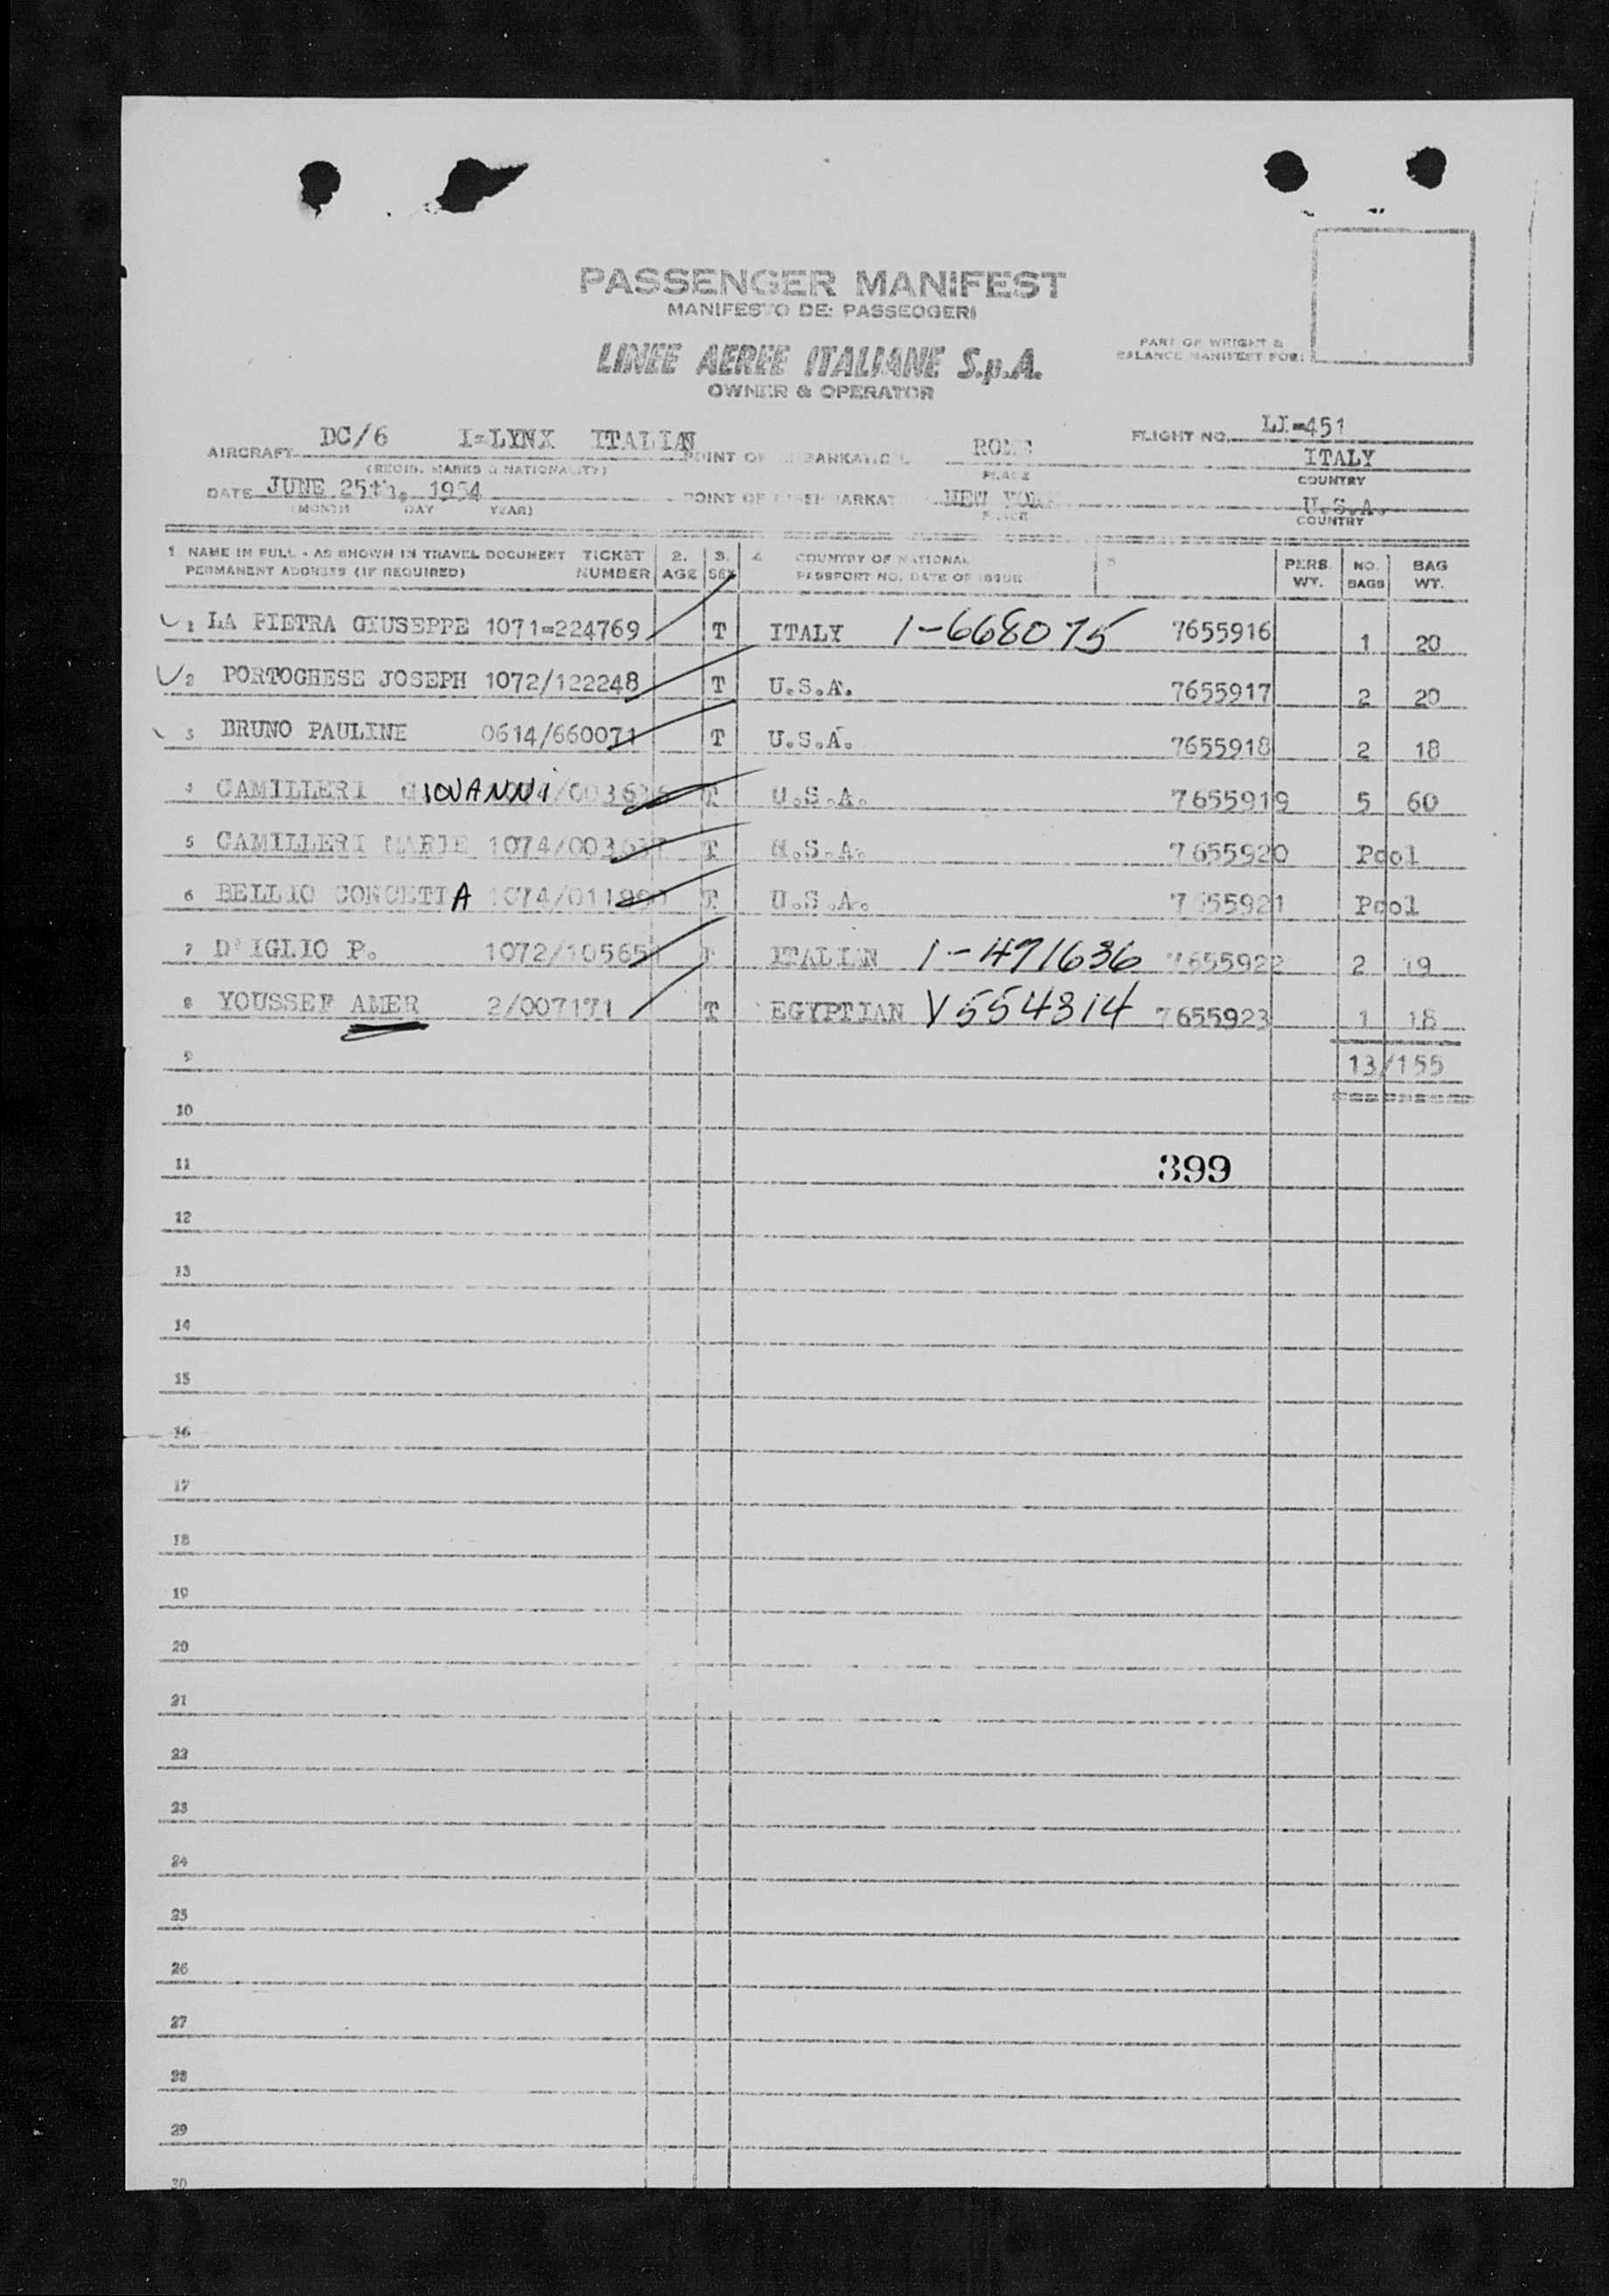 PASSENGER MANIFEST
MANIFESTO DEI PASSEGGERI
LINEE AEREE ITALIANE S.p.A.
OWNER & OPERATOR
PART OF WEIGHT &
BALANCE MANIFEST FOR:
AIRCRAFT DC/6 I=LYNX ITALIAN POINT OF EMBARKATION ROME FLIGHT NO. LI=451
(REGIS. MARKS & NATIONALITY) PLACE ITALY
COUNTRY
DATE JUNE 25th, 1954 POINT OF NEW YORK U.S.A.
(MONTH DAY YEAR) PLACE COUNTRY
1 NAME IN FULL - AS SHOWN IN TRAVEL DOCUMENT TICKET 2. 3. 4 COUNTRY OF NATIONAL 5 PERS. NO. BAG
PERMANENT ADDRESS (IF REQUIRED) NUMBER AGE SEX PASSPORT NO. DATE OF ISSUE WT. BAGS WT.
1 LA PIETRA GIUSEPPE 1071=224769 T ITALY 1-668075 7655916 1 20
2 PORTOGHESE JOSEPH 1072/122248 T U.S.A. 7655917 2 20
3 BRUNO PAULINE 0614/660071 T U.S.A. 7655918 2 18
4 CAMILLERI GIOVANNI T U.S.A. 7655919 5 60
5 CAMILLERI MARIE T U.S.A. 7655920 Pool
6 BELLIO CONCETTA T U.S.A. 7655921 Pool
7 D'IGLIO P. ITALIAN 1-471636 7655922 2 19
8 YOUSSEF AMER 2/007171 T EGYPTIAN V554814 7655923 1 18
9 13/155
10
11 399
12
13
14
15
16
17
18
19
20
21
22
23
24
25
26
27
28
29
30